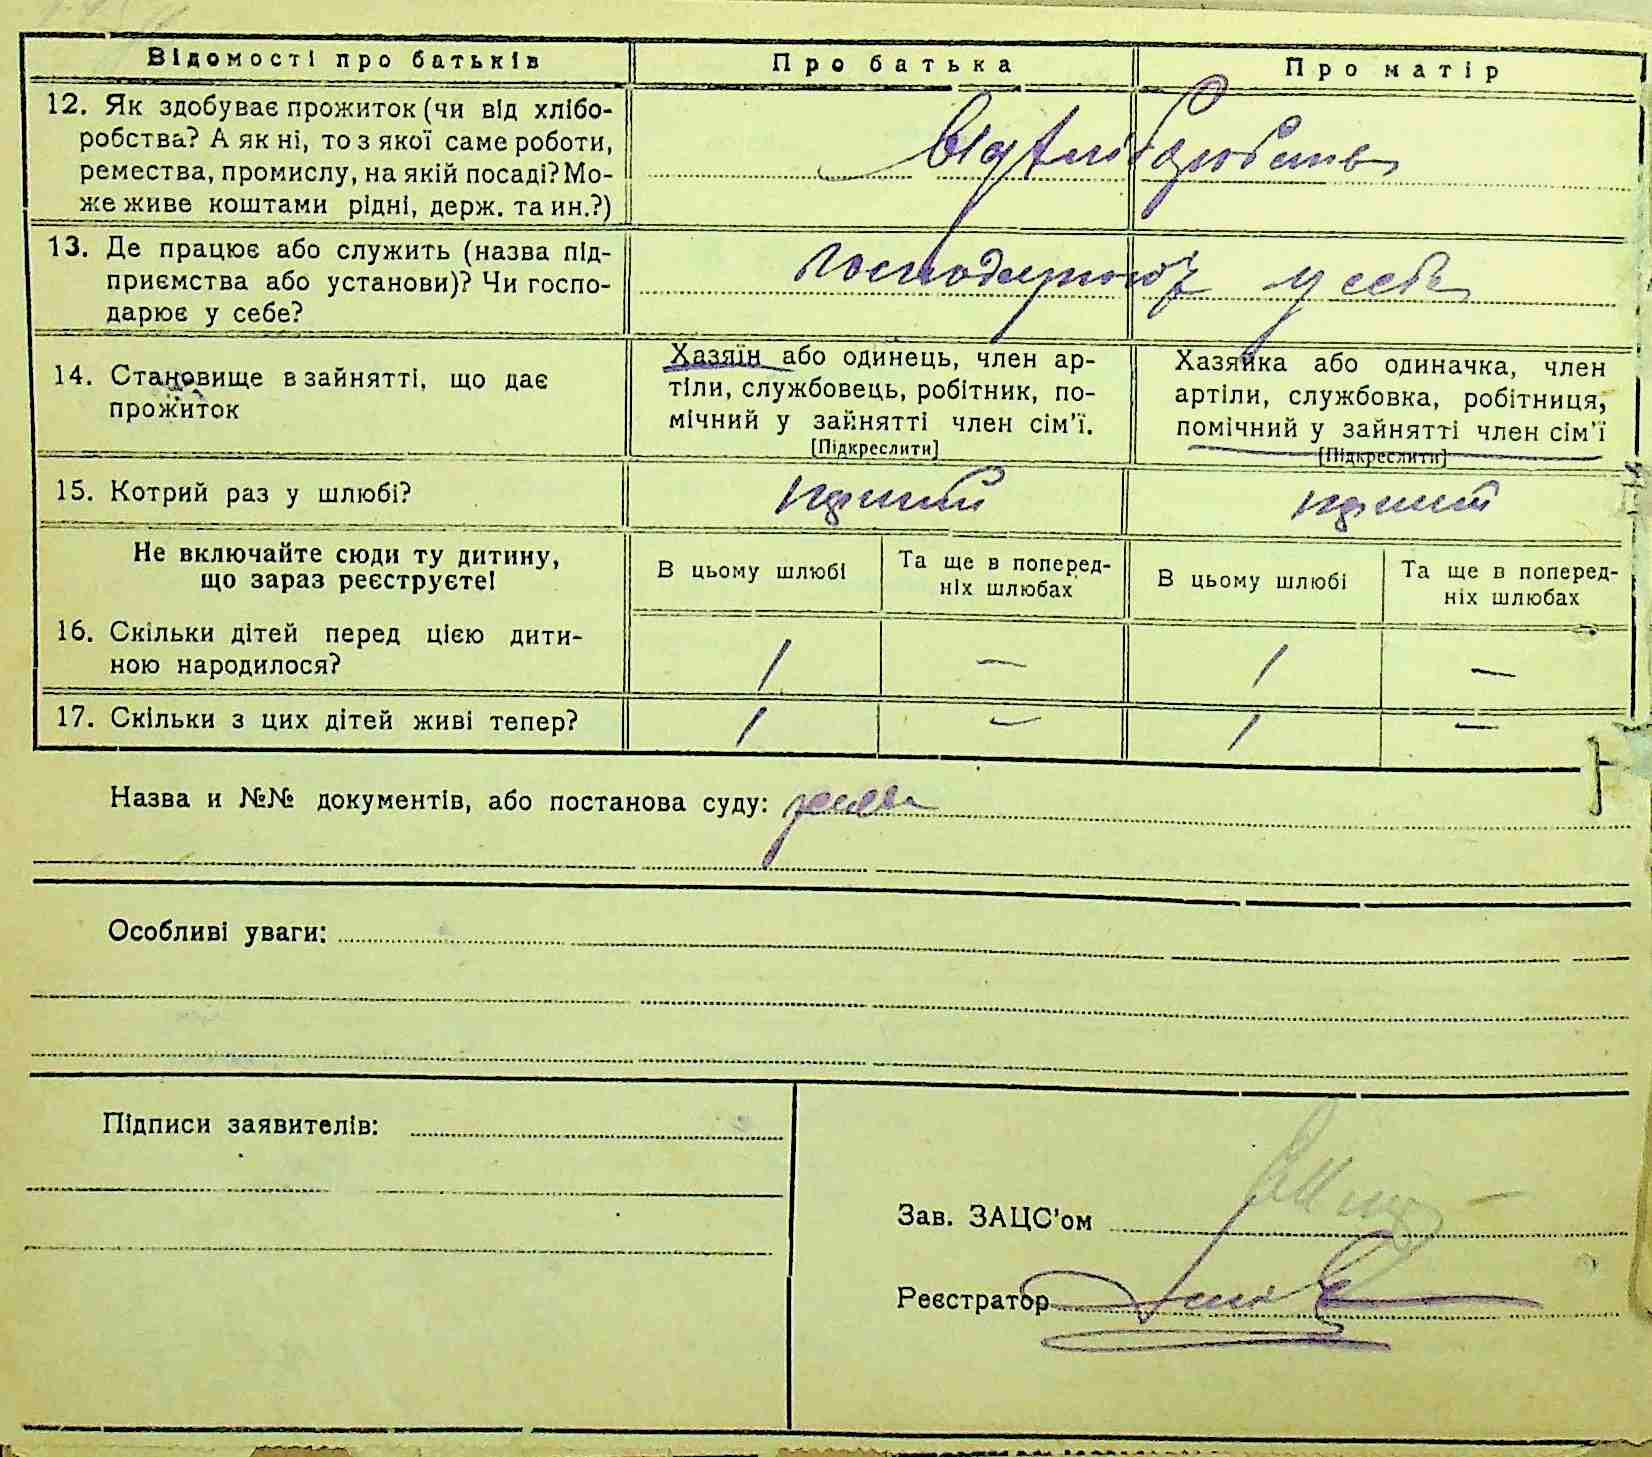 Відомості про батьків Про батька Про матір
12. Як здобуває прожиток (чи від хлібо-
робства? А як ні, то з якої саме роботи,
ремества, промислу, на якій посаді? Мо-
же живе коштами рідні, держ. та ин.?)
від хліборобства
13. Де працює або служить (назва під-
приємства або установи)? Чи госпо-
дарює у себе?
господарюють у себе
14. Становище в зайнятті, що дає
прожиток
Хазяїн або одинець, член ар-
тіли, службовець, робітник, по-
мічний у зайнятті член сім'ї.
[Підкреслити]
Хазяйка або одиначка, член
артіли, службовка, робітниця,
помічний у зайнятті член сім'ї
[Підкреслити]
15. Котрий раз у шлюбі?
Не включайте сюди ту дитину,
що зараз реєструєте!
В цьому шлюбі
Та ще в поперед-
ніх шлюбах
В цьому шлюбі
Та ще в поперед-
ніх шлюбах
16. Скільки дітей перед цією дити-
ною народилося?
1 — 1 —
17. Скільки з цих дітей живі тепер? 1 — 1 —
Назва и №№ документів, або постанова суду:
Особливі уваги:
Підписи заявителів:
Зав. ЗАЦС'ом
Реєстратор